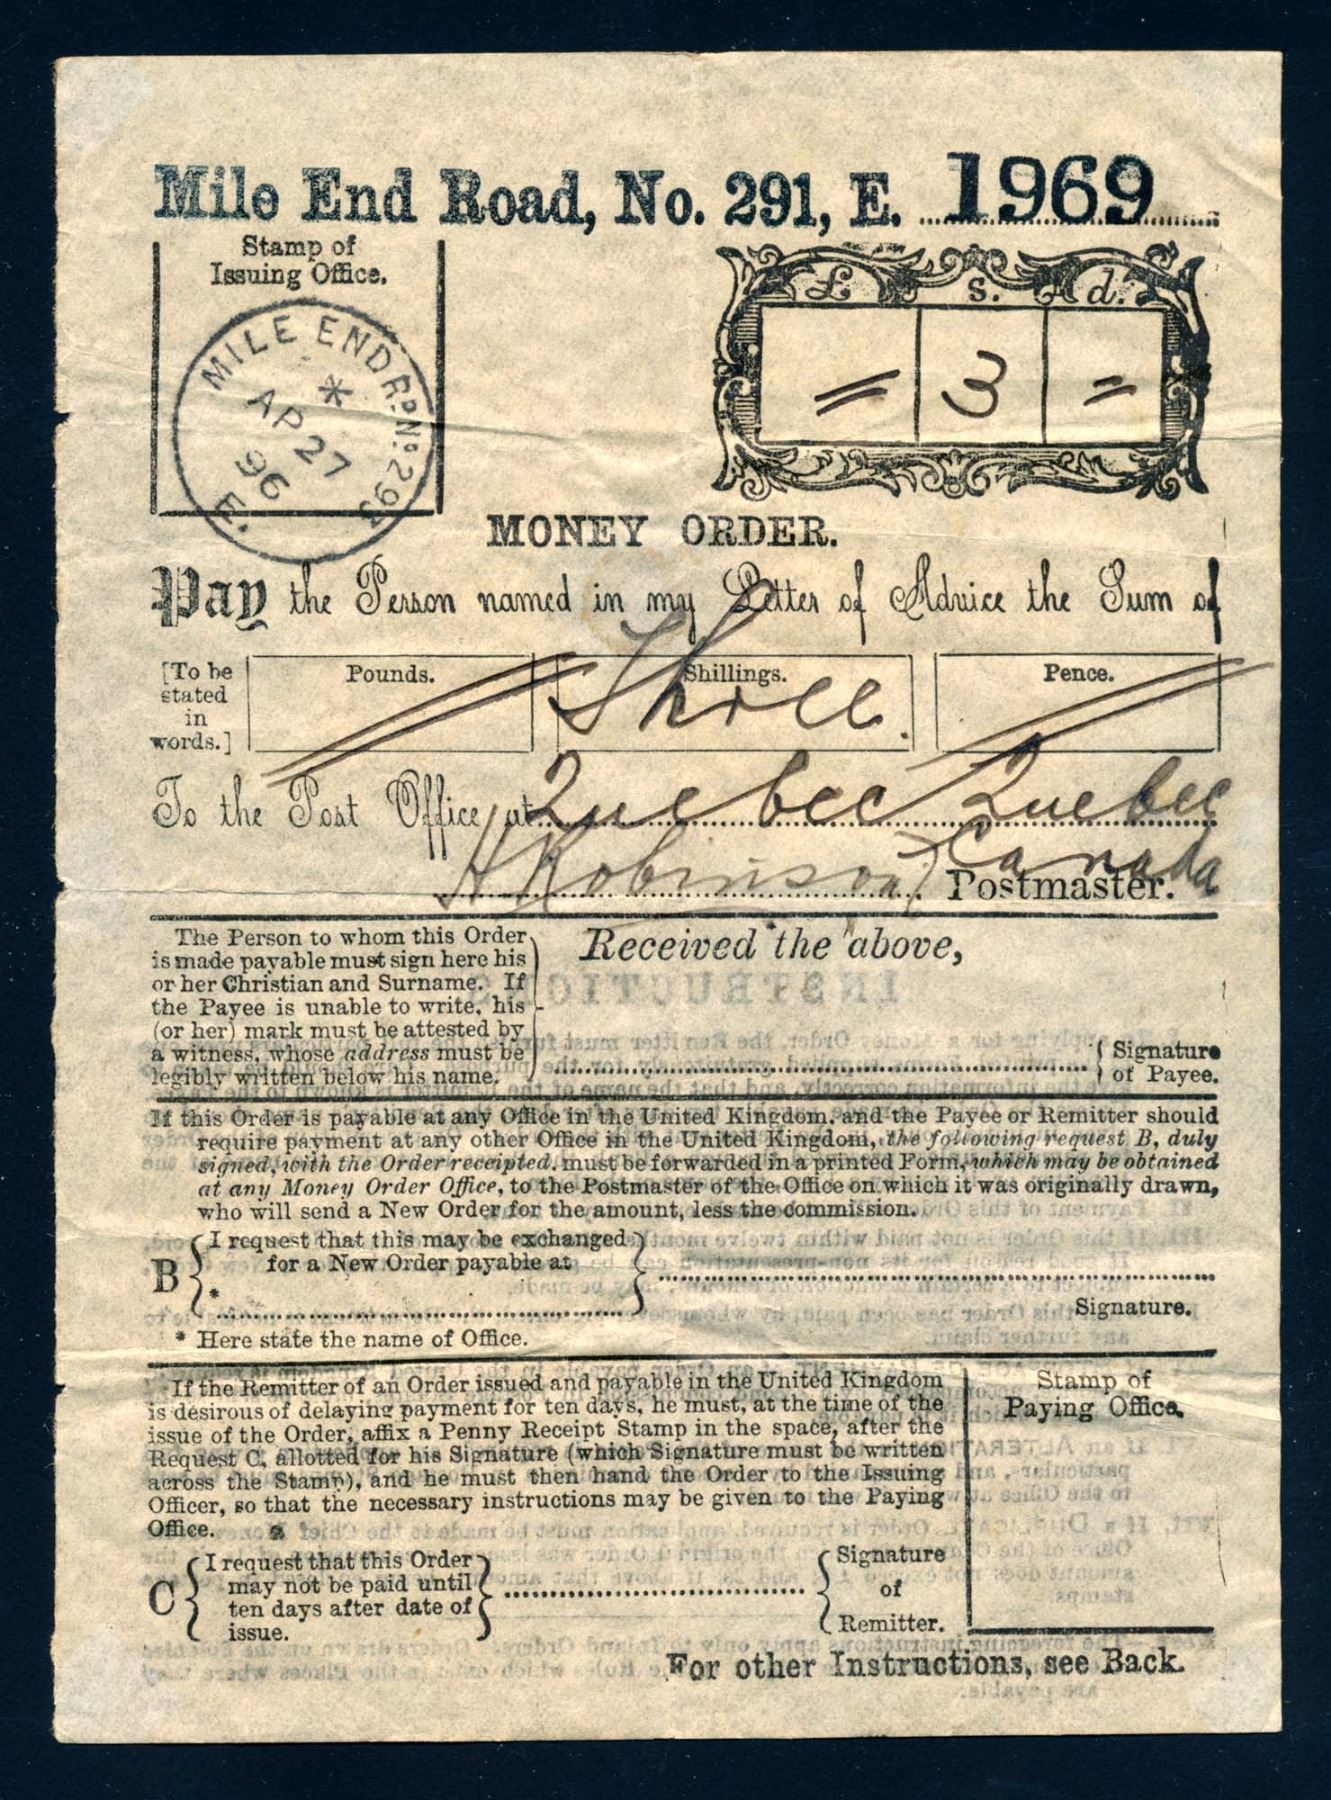 Mile End Road, No. 291, E. 1969
Stamp of
Issuing Office.
MILE END RD. No. 293
*
AP 27
96
E.
£ s. d.
= 3 =
MONEY ORDER.
Pay the Person named in my Letter of Advice the Sum of
[To be
stated
in
words.]
Pounds. Shillings. Pence.
Three
To the Post Office at Quebec Quebec
Canada
H Robinson Postmaster.
The Person to whom this Order
is made payable must sign here his
or her Christian and Surname. If
the Payee is unable to write, his
(or her) mark must be attested by
a witness, whose address must be
legibly written below his name.
Received the above,
Signature
of Payee.
If this Order is payable at any Office in the United Kingdom, and the Payee or Remitter should
require payment at any other Office in the United Kingdom, the following request B, duly
signed, with the Order receipted, must be forwarded in a printed Form, which may be obtained
at any Money Order Office, to the Postmaster of the Office on which it was originally drawn,
who will send a New Order for the amount, less the commission.
B
I request that this may be exchanged
for a New Order payable at
*
Signature.
* Here state the name of Office.
If the Remitter of an Order issued and payable in the United Kingdom
is desirous of delaying payment for ten days, he must, at the time of the
issue of the Order, affix a Penny Receipt Stamp in the space, after the
Request C, allotted for his Signature (which Signature must be written
across the Stamp), and he must then hand the Order to the Issuing
Officer, so that the necessary instructions may be given to the Paying
Office.
Stamp of
Paying Office.
C
I request that this Order
may not be paid until
ten days after date of
issue.
Signature
of
Remitter.
For other Instructions, see Back.